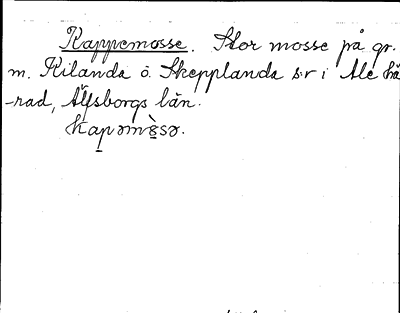 Kappemosse. Stor mosse på gr.
m. Kilanda o. Skepplanda s:r i Ale hä
-rad, Älfsborgs län.
kapəmɛ̀sə.